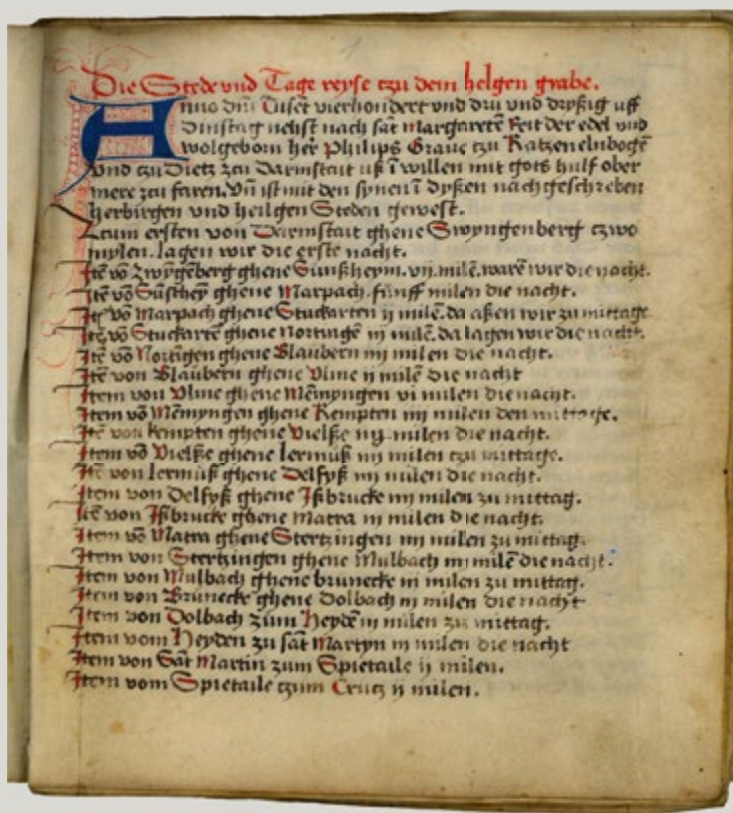 Die Stede vnd Tage reyse czu dem helgen grabe.
Anno dm̄ Tusēt vierhondert vnd dru vnd dryßig uff
Dinstag nehst nach sāt Margaretē Reit der edel vnd
wolgeborn her Philips Graue czu Katzenelnbogē
vnd czu Dietz zcu Darmstait uß ī willen mit gots hulf ober
mere zcu faren. Vn̄ ist mit den synen ī dyßen nachgeschreben
herbirgen vnd heilgen Steden gewest.
Zcum ersten von Darmstait ghene Swyngenberg czwo
mylen. lagen wir die erste nacht.
Itē vō Zwygēberg ghene Sunßheym. vij. milē. warē wir die nacht.
Itē vō Sūßheȳ ghene Marpach. funff milen die nacht.
Itē vō Marpach ghene Stuckarten ij milē. da aßen wir zu mittage
Itē vō Stuckartē ghene Nortingē iij milē. da lagen wir die nacht.
Itē vō Nortīgen ghene Blaubern iiij milen die nacht.
Itē von Blaubern ghene Vlme ij milē die nacht
Item von Vlme ghene Mēmyngen vi milen die nacht.
Item vō Mēmyngen ghene Kempten iiij milen den mittage.
Itē von kempten ghene Vielße iiij milen die nacht.
Item vō Vielße ghene lermuß iiij milen czu mittage.
Itē von lermuß ghene Delfyß iiij milen die nacht.
Item von Delfyß ghene Ißbrucke iiij milen zu mittag.
Itē von Ißbrucke ghene Matra iij milen die nacht.
Item vō Matra ghene Stertzingen iiij milen zu mittag.
Item von Stertzingen ghene Mulbach iiij milē die nacht.
Item von Mulbach ghene brunecke iij milen zu mittag.
Item von Brunecke ghene Dolbach iij milen die nacht
Item von Dolbach zum Heydē iij milen zu mittag.
Item vom Heyden zu sāt Martyn iij milen die nacht
Item von Sāt Martin zum Spietaile ij milen.
Item vom Spietaile czum Crucz ij milen.